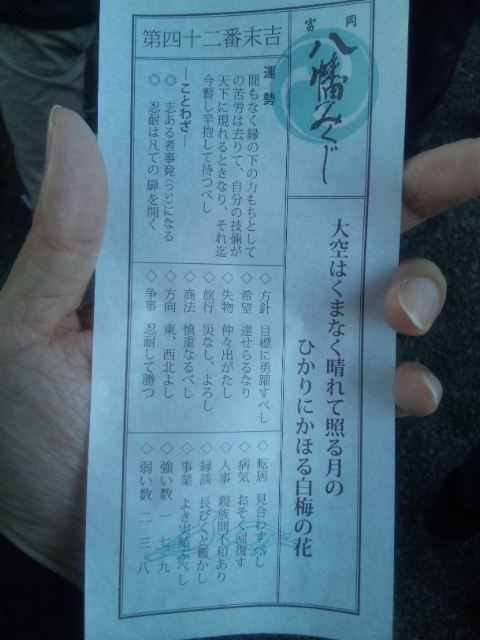 富岡
八幡みくじ
大空はくまなく晴れて照る月の
ひかりにかほる白梅の花
第四十二番末吉
運勢
間もなく縁の下の力もちとして
の苦労は去りて、自分の技倆が
天下に現れるときなり、それ迄
今暫し辛抱して待つべし
―ことわざ―
◎ 志ある者事竟(つい)になる
◎ 忍耐は凡ての扉を開く
◇ 方針 目標に勇躍すべし
◇ 希望 達せらるなり
◇ 失物 仲々出がたし
◇ 旅行 災なし、よろし
◇ 商法 慎重なるべし
◇ 方向 東、西北よし
◇ 争事 忍耐して勝つ
◇ 転居 見合わすべし
◇ 病気 おそく回復す
◇ 人事 親族間不和あり
◇ 縁談 長びくと難かし
◇ 事業 よき実結ぶべし
◇ 強い数 一 七 九
◇ 弱い数 二 三 八